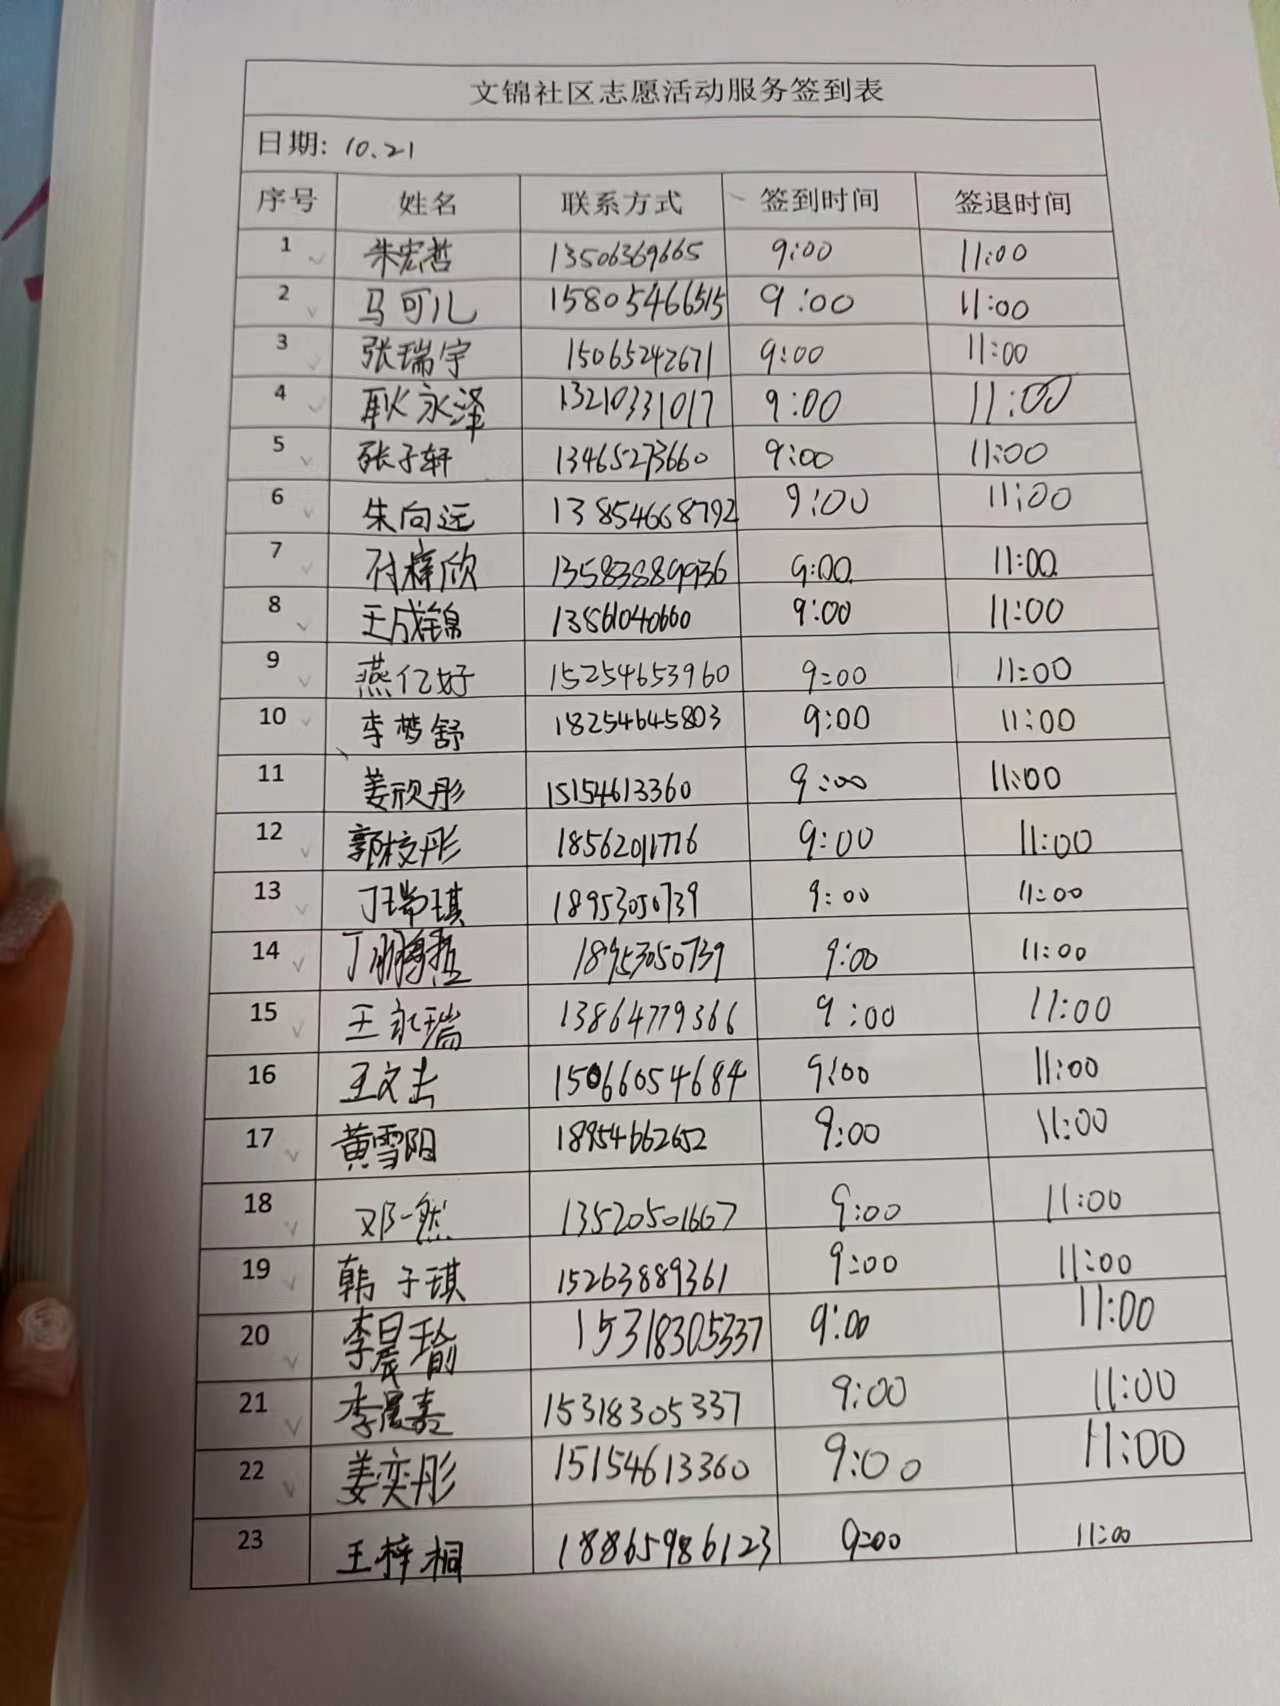 文锦社区志愿活动服务签到表
日期: 10.21
序号 姓名 联系方式 签到时间 签退时间
1 朱宏哲 13506369665 9:00 11:00
2 马可儿 15805466515 9:00 11:00
3 张瑞宇 15065242671 9:00 11:00
4 耿永泽 13210331017 9:00 11:00
5 张子轩 13465273660 9:00 11:00
6 朱向远 13854668792 9:00 11:00
7 付梓欣 13583889936 9:00 11:00
8 王成锦 13861040660 9:00 11:00
9 燕亿好 15254653960 9:00 11:00
10 李梦舒 18254645803 9:00 11:00
11 姜欣彤 15154613360 9:00 11:00
12 郭校彤 18562011776 9:00 11:00
13 丁瑞琪 18953050739 9:00 11:00
14 18953050739 9:00 11:00
15 王永瑞 13864779366 9:00 11:00
16 王文 15066054684 9:00 11:00
17 黄雪阳 18954662652 9:00 11:00
18 邓一然 13520501667 9:00 11:00
19 韩子琪 15263889361 9:00 11:00
20 李晨瑜 15318305337 9:00 11:00
21 李晨嘉 15318305337 9:00 11:00
22 姜奕彤 15154613360 9:00 11:00
23 王梓桐 18865986123 9:00 11:00